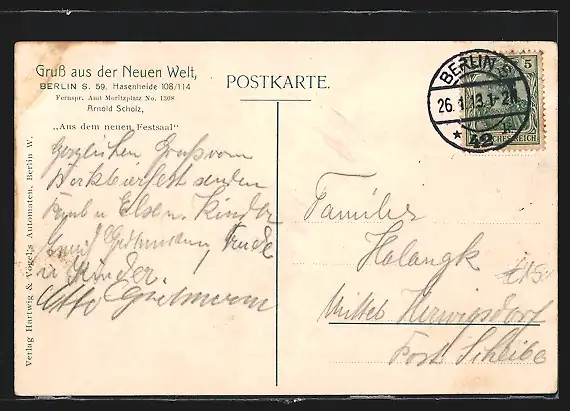 Gruß aus der Neuen Welt,
BERLIN S. 59. Hasenheide 108/114
Fernspr. Amt Moritzplatz No. 1308
Arnold Scholz,
„Aus dem neuen Festsaal"
POSTKARTE.
BERLIN S
26. 1. 13. 1-2
* 42
5
REICH
Herzlichen Gruß vom
Bockbierfest senden
u Else u. Kinder
Trude
u Kinder.
Otto
Familie
Halangk
Mittel Herwigsdorf
Post Scheibe
Verlag Hartwig & Vogel's Automaten, Berlin W.